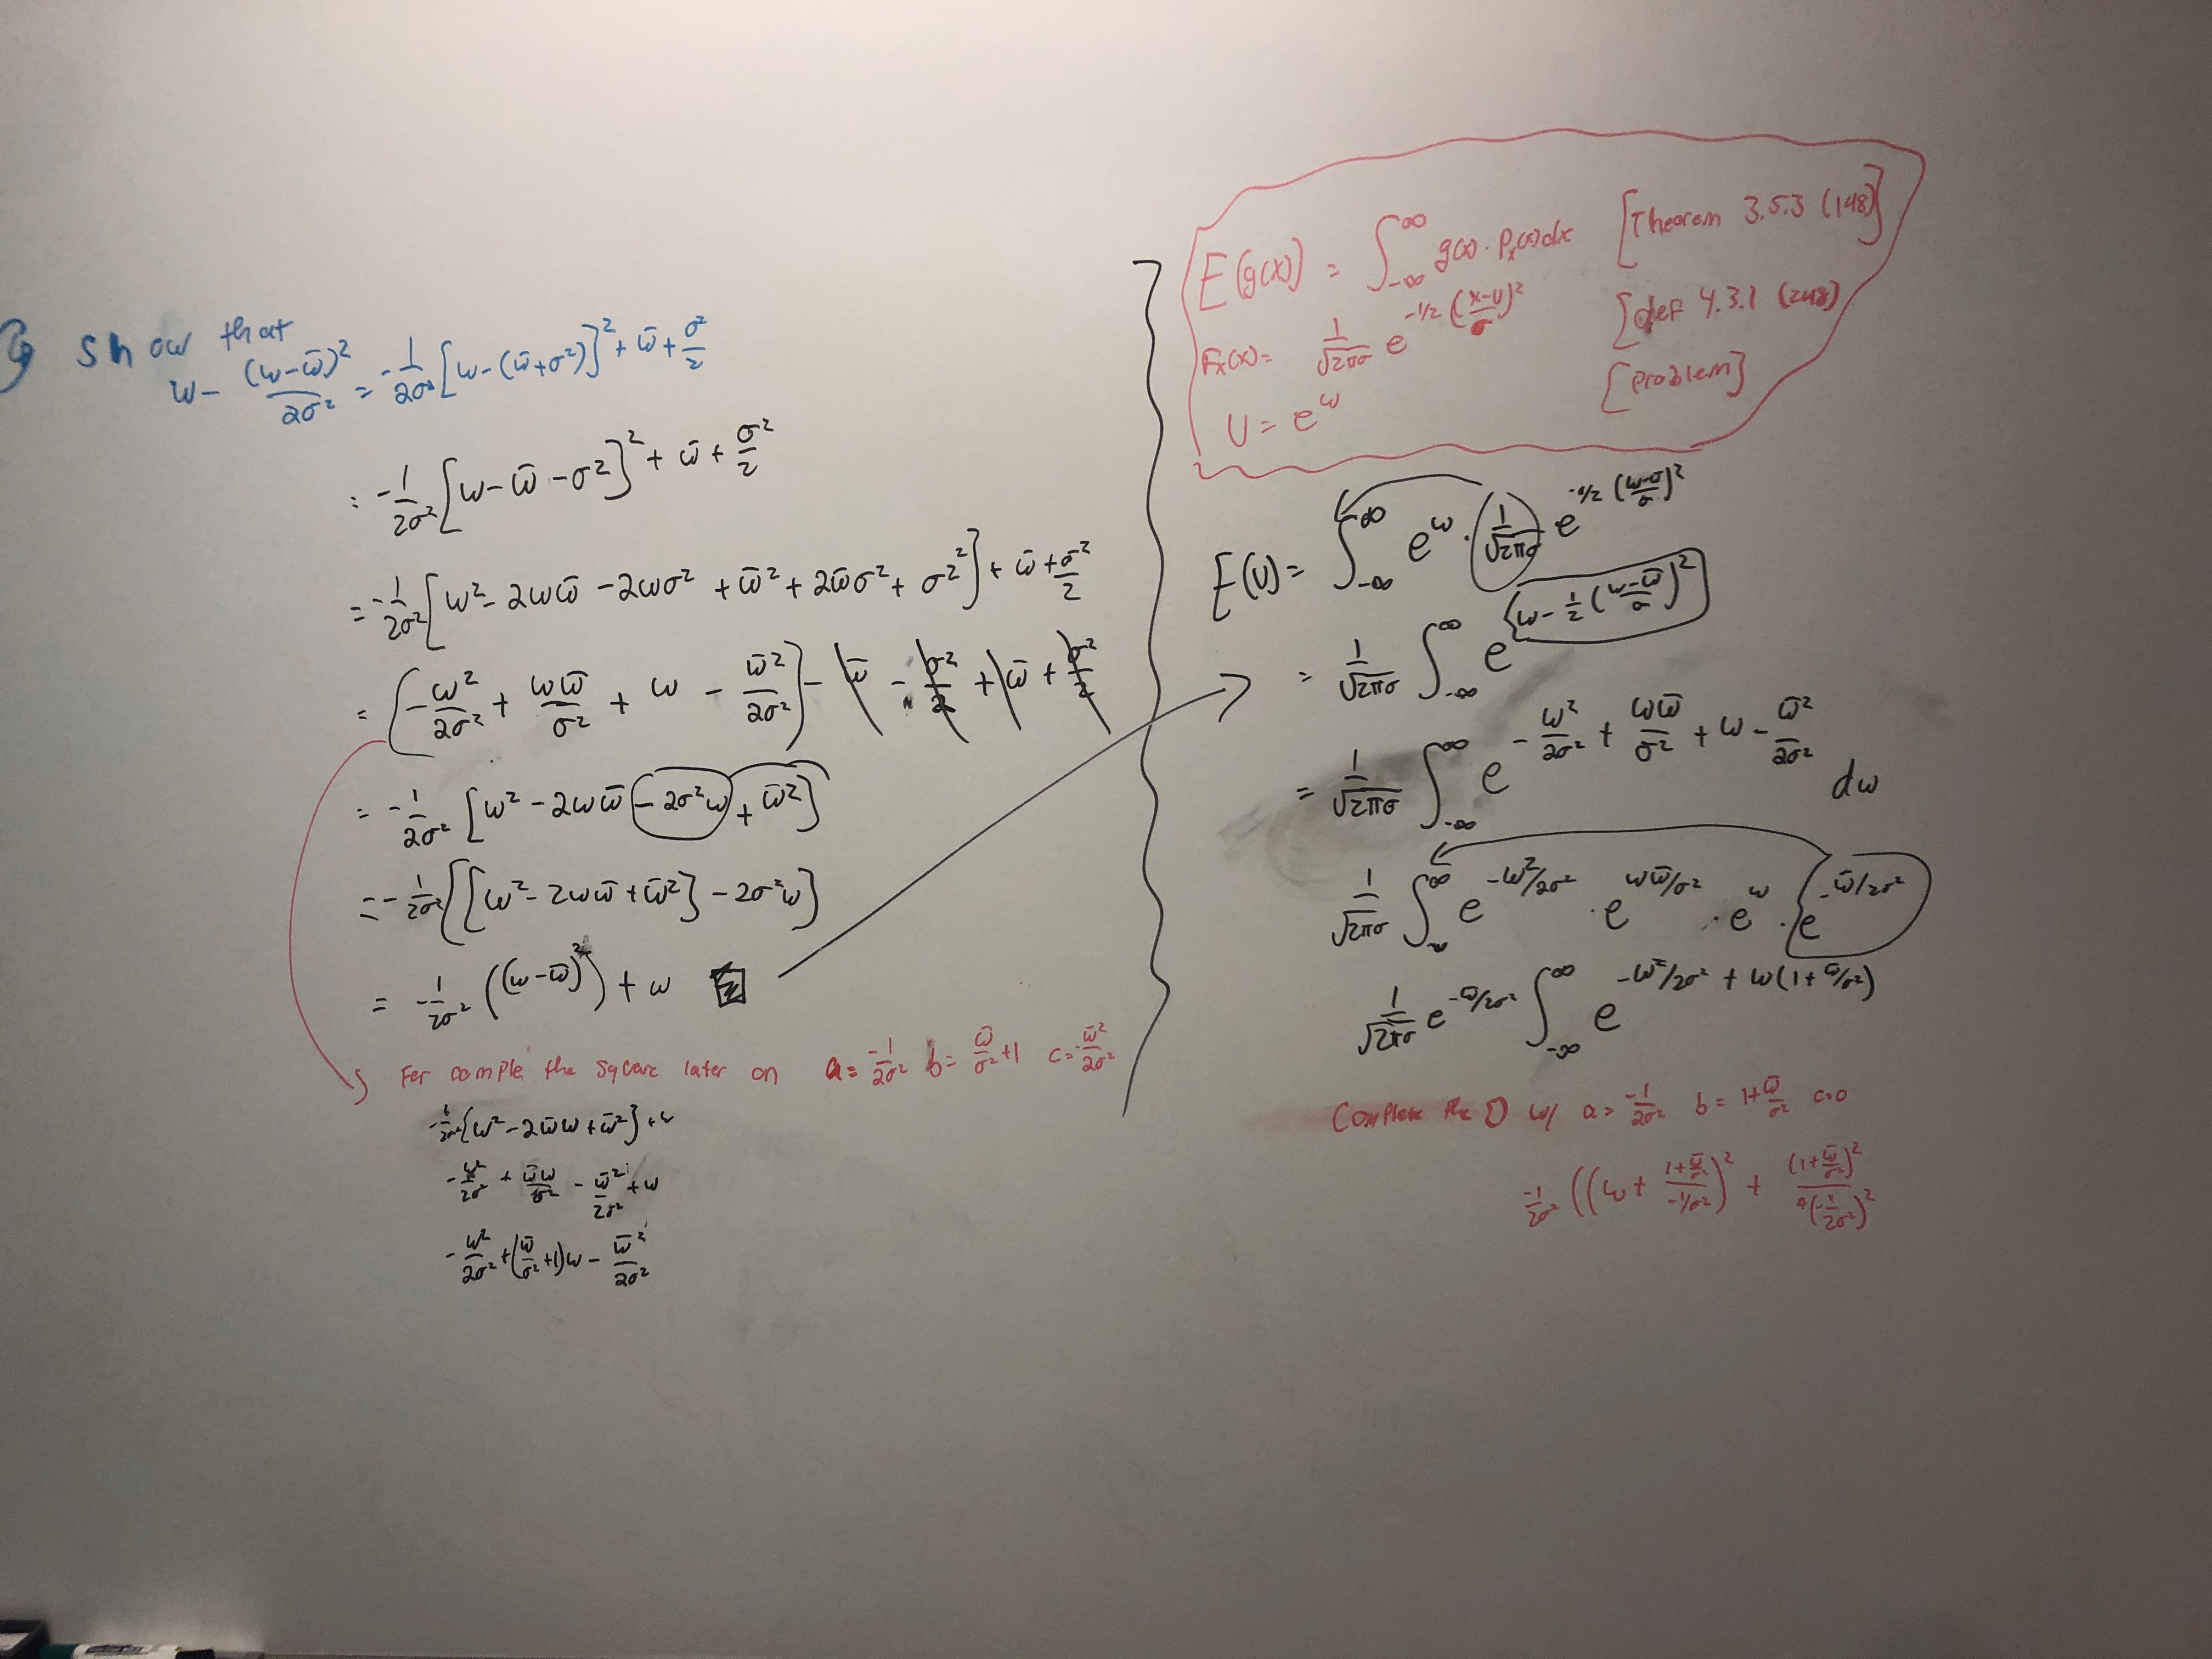 Show that
w - (w-w̄)²/2σ² = -1/2σ² [w-(w̄+σ²)]² + w̄ + σ²/2
= -1/2σ² [w-w̄-σ²]² + w̄ + σ²/2
= -1/2σ² [w² - 2ww̄ - 2wσ² + w̄² + 2w̄σ² + σ²²] + w̄ + σ²/2
= (-w²/2σ² + ww̄/σ² + w - w̄²/2σ²) - w̄ - σ²/2 + w̄ + σ²/2
= -1/2σ² [w² - 2ww̄ - 2σ²w + w̄²]
= -1/2σ² ([w² - 2ww̄ + w̄²] - 2σ²w)
= -1/2σ² ((w-w̄)²) + w
For comple the square later on a = -1/2σ² b = w̄/σ²+1 c = -w̄²/2σ²
-1/2σ² [w² - 2w̄w + w̄²] + w
-w²/2σ² + w̄w/σ² - w̄²/2σ² + w
-w²/2σ² + (w̄/σ²+1)w - w̄²/2σ²
E(g(x)) = ∫_-∞^∞ g(x)·Pₓ(x)dx [Theorem 3.5.3 (148)]
Fₓ(x) = 1/√2πσ e^-1/2 ((x-u)/σ)² [def 4.3.1 (248)]
U = e^w [Problem]
E(U) = ∫_-∞^∞ e^w · 1/√2πσ e^-1/2 ((w-σ)/σ)²
= 1/√2πσ ∫_-∞^∞ e^{w - 1/2 ((w-w̄)/σ)²}
= 1/√2πσ ∫_-∞^∞ e^{-w²/2σ² + ww̄/σ² + w - w̄²/2σ²} dw
1/√2πσ ∫_-∞^∞ e^{-w²/2σ²} · e^{ww̄/σ²} · e^w · e^{-w̄/2σ²}
1/√2πσ e^{-w̄/2σ²} ∫_-∞^∞ e^{-w²/2σ² + w(1+w̄/σ²)}
Complete the □ w/ a = -1/2σ² b = 1+w̄/σ² c=0
-1/2σ² ((w + (1+w̄/σ²)/(-1/σ²))² + (1+w̄/σ²)²/4(-1/2σ²)²